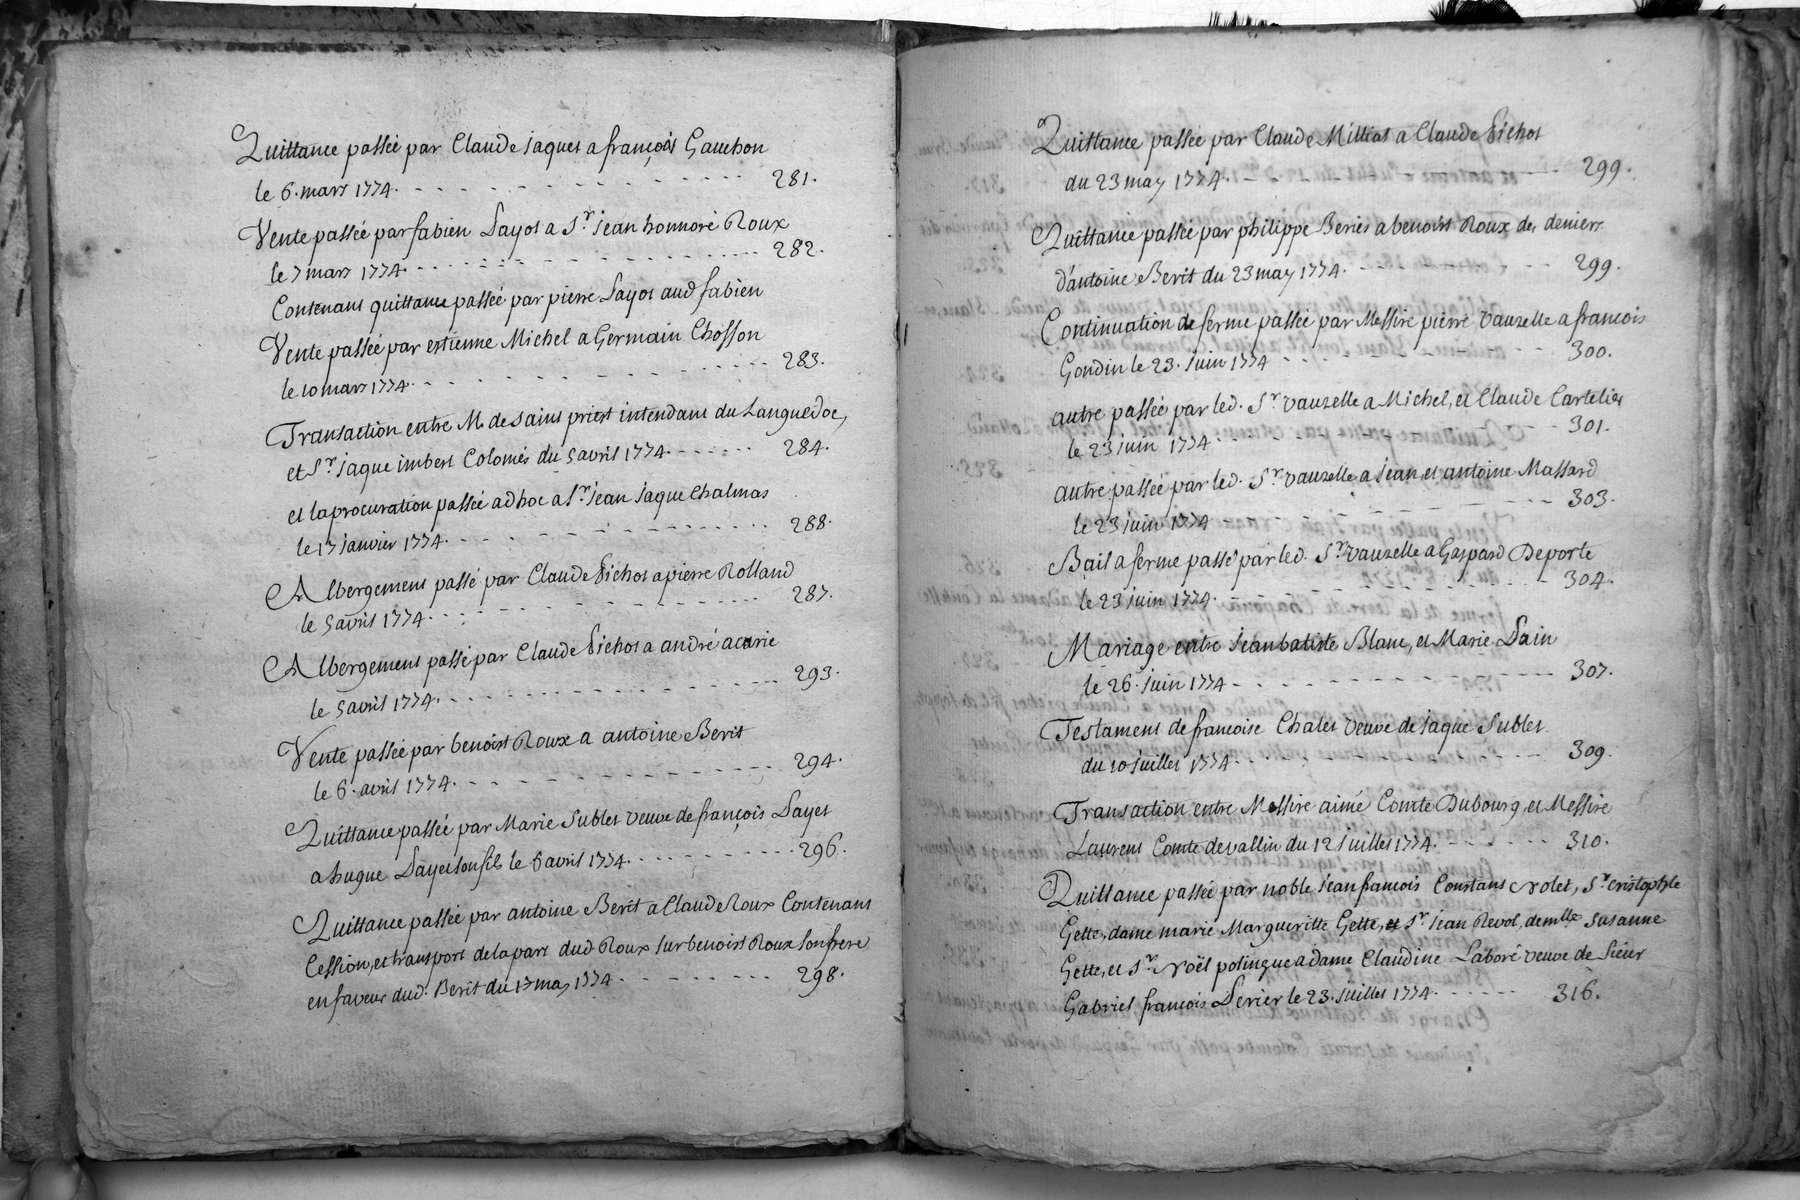 Quittance passée par Claude jaques a françois Gauchon
le 6. mars 1774. 281.
Vente passée par fabien Layot a Sr. jean honnoré Roux
le 7 mars 1774. 282.
Contenant quittance passée par pierre Layot aud fabien
Vente passée par estienne Michel a Germain Chosson
le 10 mars 1774. 283.
Transaction entre M. de saint priest intendant du Languedoc,
et Sr. jaque imbert Colomés du 5 avril 1774. 284.
et la procuration passée ad hoc a Sr. jean jaque Chalmas
le 17 janvier 1774. 288.
Albergement passé par Claude Pichot a pierre Rolland
le 5 avril 1774. 287.
Albergement passé par Claude Pichot a andré acarie
le 5 avril 1774. 293.
Vente passée par benoist Roux a antoine Berit
le 6. avril 1774. 294.
Quittance passée par Marie Sublet veuve de françois Layet
a hugue Layet son fils le 6 avril 1774. 296.
Quittance passée par antoine Berit a Claude Roux Contenant
Cession, et transport de la part dud. Roux sur benoist Roux son frere
en faveur dud. Berit du 17 may 1774. 298.
Quittance passée par Claude Milliat a Claude Pichot
du 23 may 1774. 299.
Quittance passée par philippe Beries a benoist Roux des deniers
d'antoine Berit du 23 may 1774. 299.
Continuation de ferme passée par Messire pierre Vauzelle a francois
Gondin le 23. juin 1774 300.
autre passée par led. Sr. vauzelle a Michel, et Claude Cartelier
le 23 juin 1774 301.
autre passée par led. Sr. vauzelle a jean, et antoine Massard
le 23 juin 1774 303.
Bail a ferme passé par led. Sr. vauzelle a Gaspard Deporte
le 23 juin 1774. 304.
Mariage entre jean batiste Blanc, et Marie Lain
le 26. juin 1774 307.
Testament de francoise Chalet veuve de jaque Sublet
du 10 juillet 1774. 309.
Transaction entre Messire aimé Comte Dubourg et Messire
Laurent Comte de vallin du 12 juillet 1774. 310.
Quittance passée par noble jean francois Constant Nolet, Sr. cristophle
Gette, dame marie Margueritte Gette, et Sr. jean Revol, demlle. Susanne
Gette, et Sr. Noël polingue a dame Claudine Laboré veuve de Sieur
Gabriel francois Perier le 23. juillet 1774. 316.